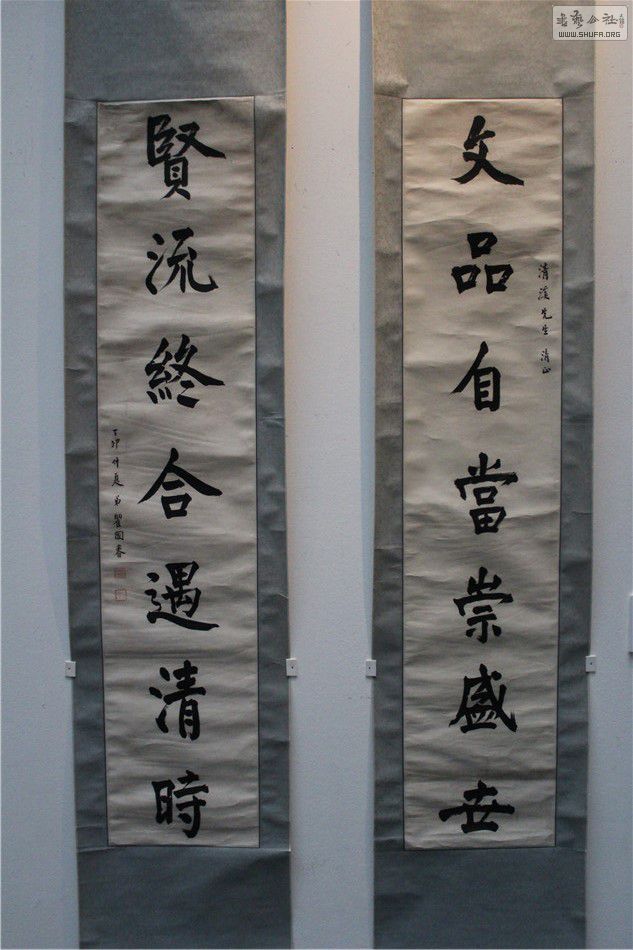 文品自當崇盛世
清溪先生清正
賢流終合遇清時
丁卯仲夏弟瞿國春
書藝公社
WWW.SHUFA.ORG